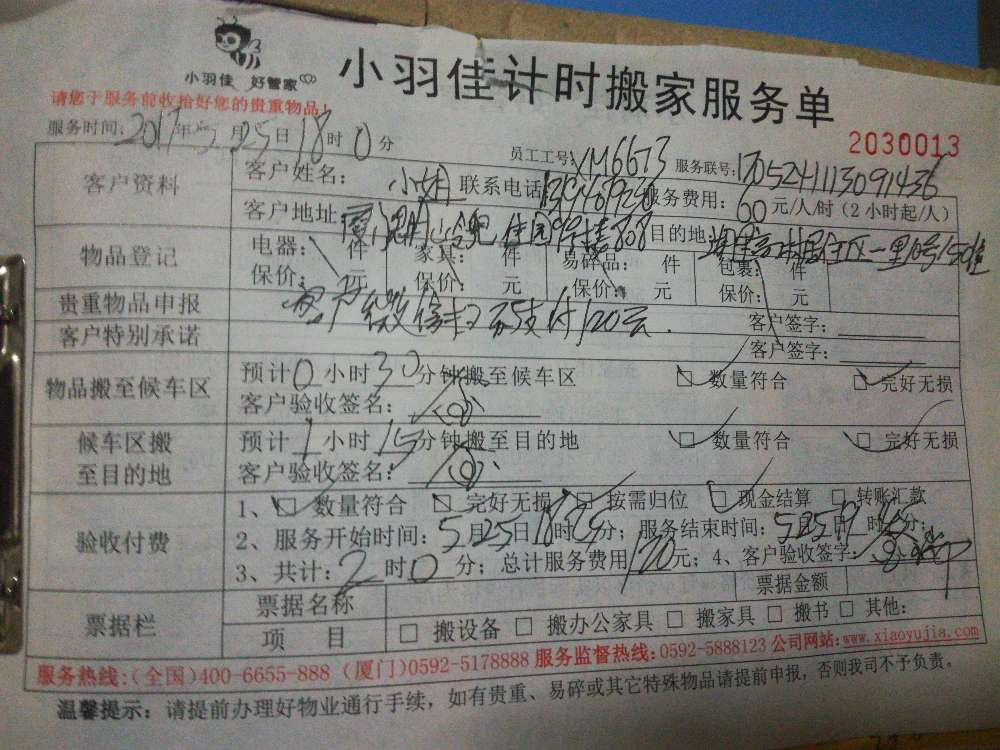 小羽佳 好管家
小羽佳计时搬家服务单
请您于服务前收拾好您的贵重物品！
2030013
服务时间：2017年5月25日18时0分 员工工号：XM6673 服务联号：1705241113091436
客户资料 客户姓名：小姐 联系电话 服务费用：60元/人/时（2小时起/人）
客户地址：808 目的地：
物品登记 电器：件 家具：件 易碎品：件 包裹：件
保价：元 保价：元 保价：元 保价：元
贵重物品申报 客户微信扫码支付120元. 客户签字：
客户特别承诺 客户签字：
物品搬至候车区 预计0小时30分钟搬至候车区 数量符合 完好无损
客户验收签名：
候车区搬至目的地 预计1小时15分钟搬至目的地 数量符合 完好无损
客户验收签名：
验收付费 1、数量符合 完好无损 按需归位 现金结算 转账汇款
2、服务开始时间：5月25日时分；服务结束时间：5月25日时分；
3、共计：2时0分；总计服务费用120元；4、客户验收签字：
票据栏 票据名称 票据金额
项 目 搬设备 搬办公家具 搬家具 搬书 其他：
服务热线：(全国)400-6655-888 (厦门)0592-5178888 服务监督热线：0592-5888123 公司网站：www.xiaoyujia.com
温馨提示：请提前办理好物业通行手续，如有贵重、易碎或其它特殊物品请提前申报，否则我司不予负责。